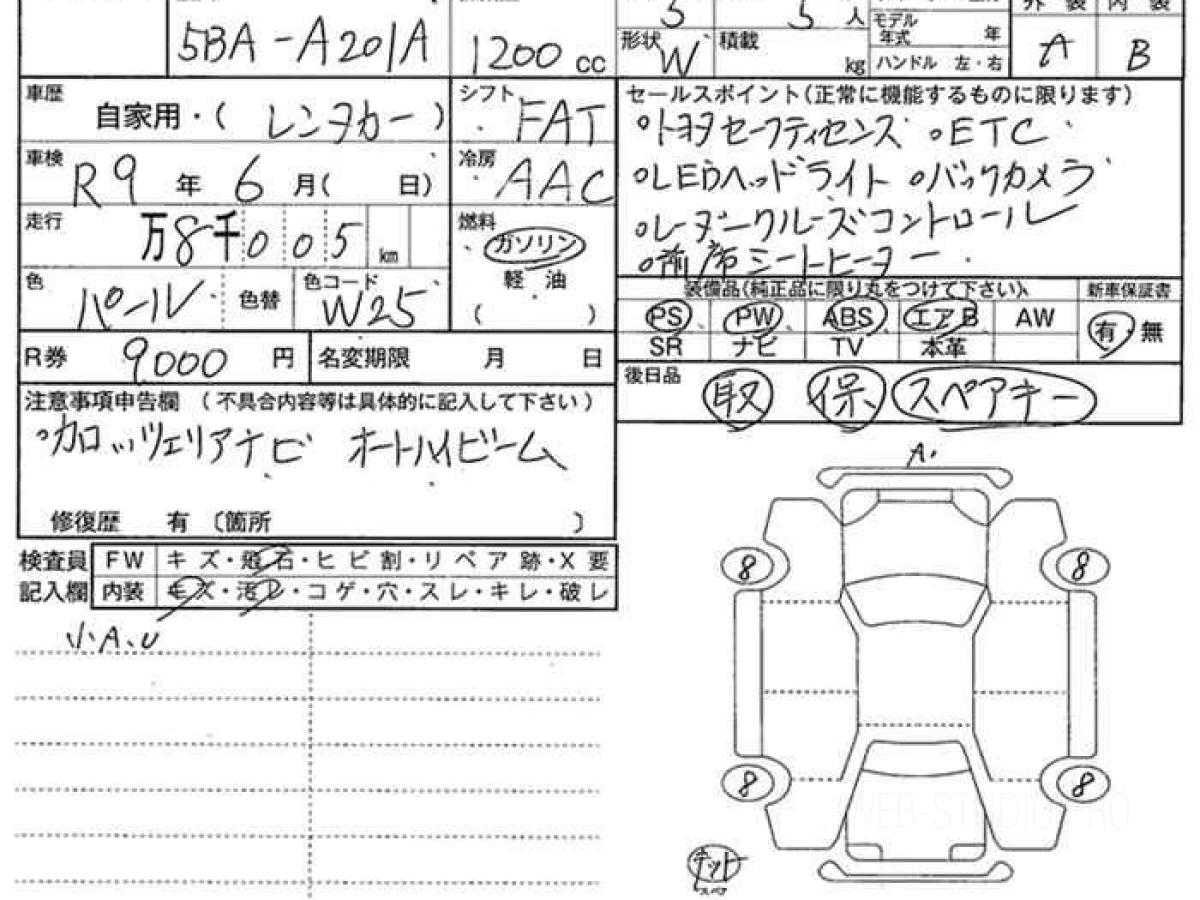 5 5人
外装 内装
5BA-A201A 1200 cc 形状 W 積載 kg モデル年式 年 ハンドル 左・右 A B
車歴 自家用・( レンタカー ) シフト FAT
車検 R9年 6月( 日) 冷房 AAC
走行 万8千005 km 燃料 ガソリン 軽油 ( )
色 パール 色替 色コード W25
R券 9,000 円 名変期限 月 日
セールスポイント(正常に機能するものに限ります)
○トヨタセーフティセンス ○ETC
○LEDヘッドライト ○バックカメラ
○レーダークルーズコントロール
○前席シートヒーター
装備品(純正品に限り丸をつけて下さい) 新車保証書
PS PW ABS エアB AW 有・無
SR ナビ TV 本革
後日品 取 保 スペアキー
注意事項申告欄 (不具合内容等は具体的に記入して下さい)
○カロッツェリアナビ オートハイビーム
修復歴 有 〔箇所 〕
検査員 FW キズ・飛石・ヒビ割・リペア跡・X要
記入欄 内装 キズ・汚レ・コゲ・穴・スレ・キレ・破レ
小A、U
A
8 8
8 8
WEB-STUDIO.PRO
キット
スペア